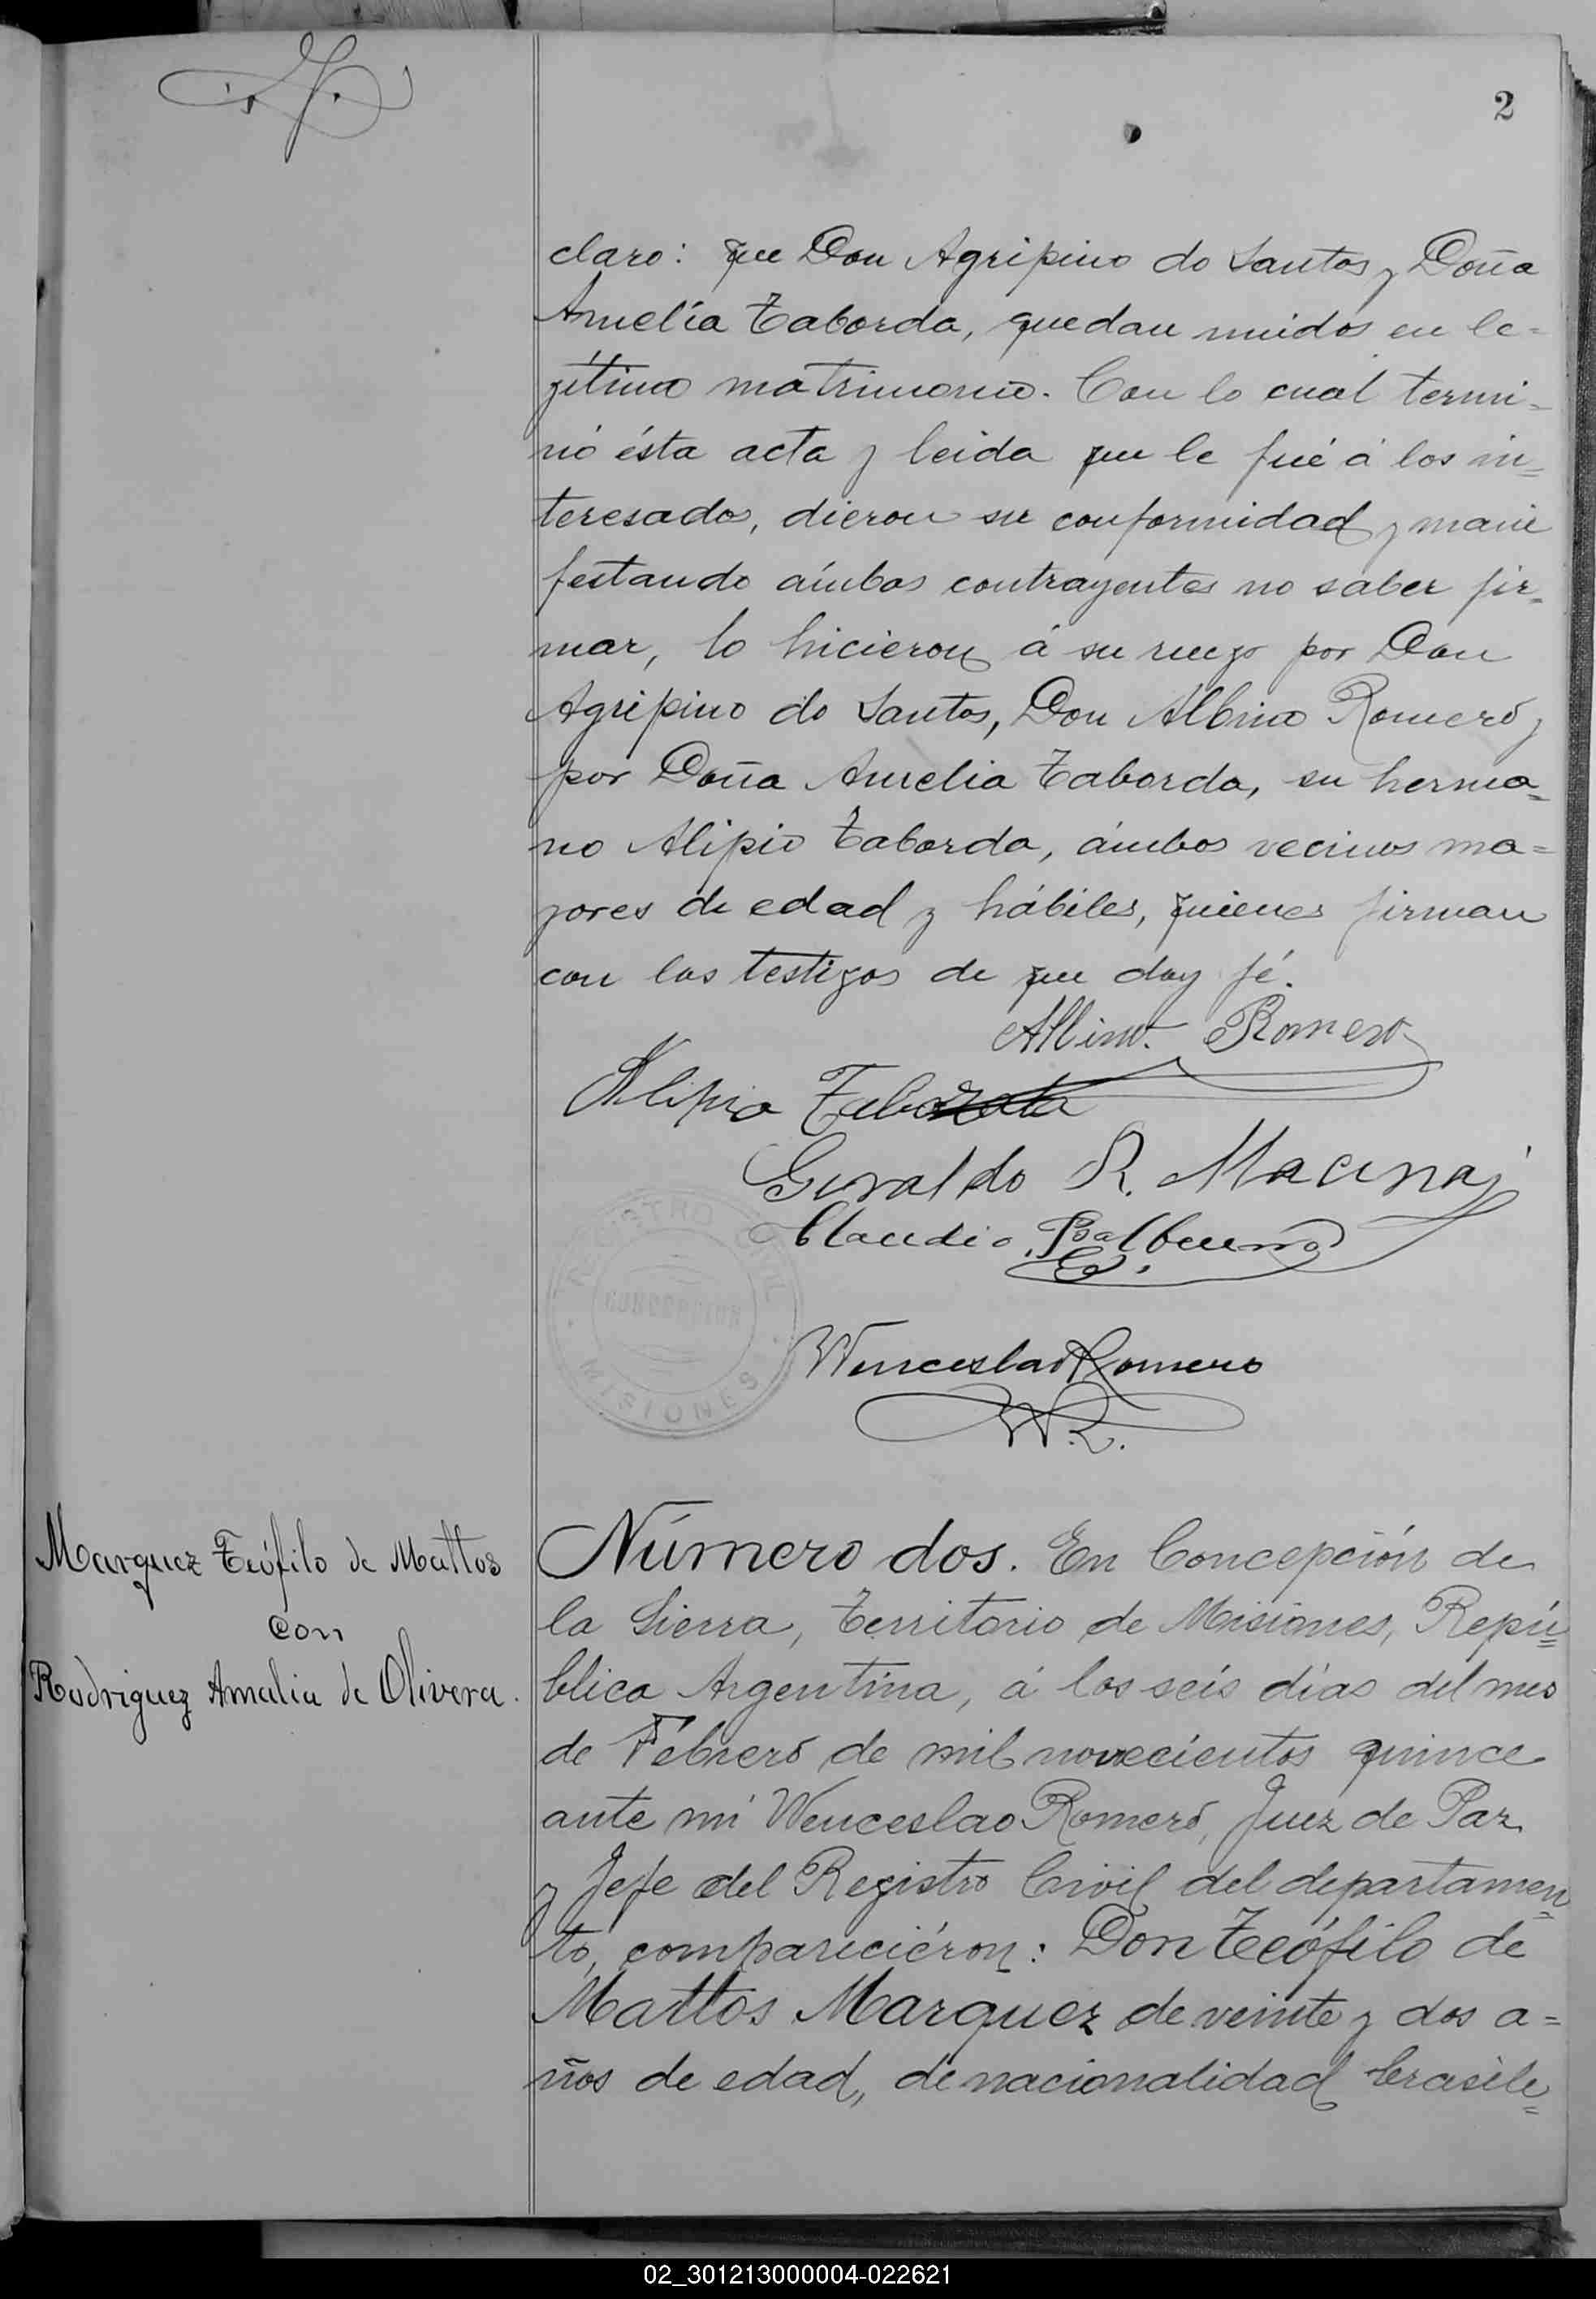 2
claro: que Don Agripino do Santos y Doña
Amelía Taborda, quedan unidos en le=
gítimo matrimonio. Con lo cual termi=
nó ésta acta y leida que le fué á los in=
teresados, dieron su conformidad y mani
festando ámbos contrayentes no saber fir=
mar, lo hicieron á su ruego por Don
Agripino do Santos, Don Albino Romero y
por Doña Amelia Taborda, su herma=
no Alipio Taborda, ámbos vecinos ma=
yores de edad y hábiles, quienes firman
con los testigos de que doy fé.
Albino Romero
Alipio Taborda
Geraldo R.
Claudio Balbueno
REGISTRO CIVIL
CONCEPCION
MISIONES
Wenceslao Romero
W.R.
Marquez Teófilo de Mattos
con
Rodriguez Amalia de Olivera.
Número dos. En Concepción de
la Sierra, Territorio de Misiones, Repú=
blica Argentina, á los seis días del mes
de Febrero de mil novecientos quince
ante mí Wenceslao Romero, Juez de Paz
y Jefe del Registro Civil del departamen=
to, compareciéron: Don Teófilo de
Mattos Marquez de veinte y dos a=
ños de edad, de nacionalidad brasile=
02_301213000004-022621